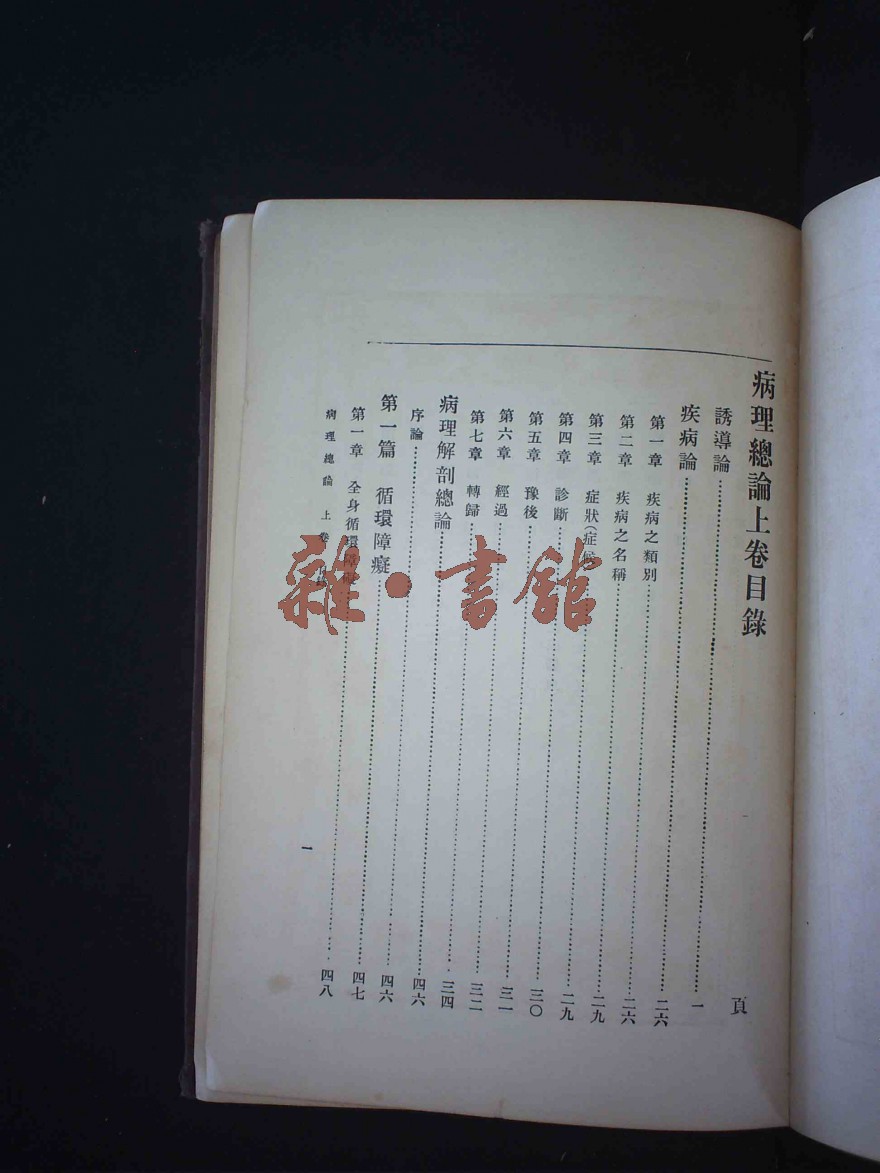 病理總論上卷目錄
頁
誘導論 一
疾病論 二六
第一章 疾病之類別 二六
第二章 疾病之名稱 二九
第三章 症狀(症候) 二九
第四章 診斷 三〇
第五章 豫後 三一
第六章 經過 三二
第七章 轉歸 三四
病理解剖總論 四六
序論 四六
第一篇 循環障礙 四七
第一章 全身循環障礙 四八
病理總論 上卷
一
雜·書館